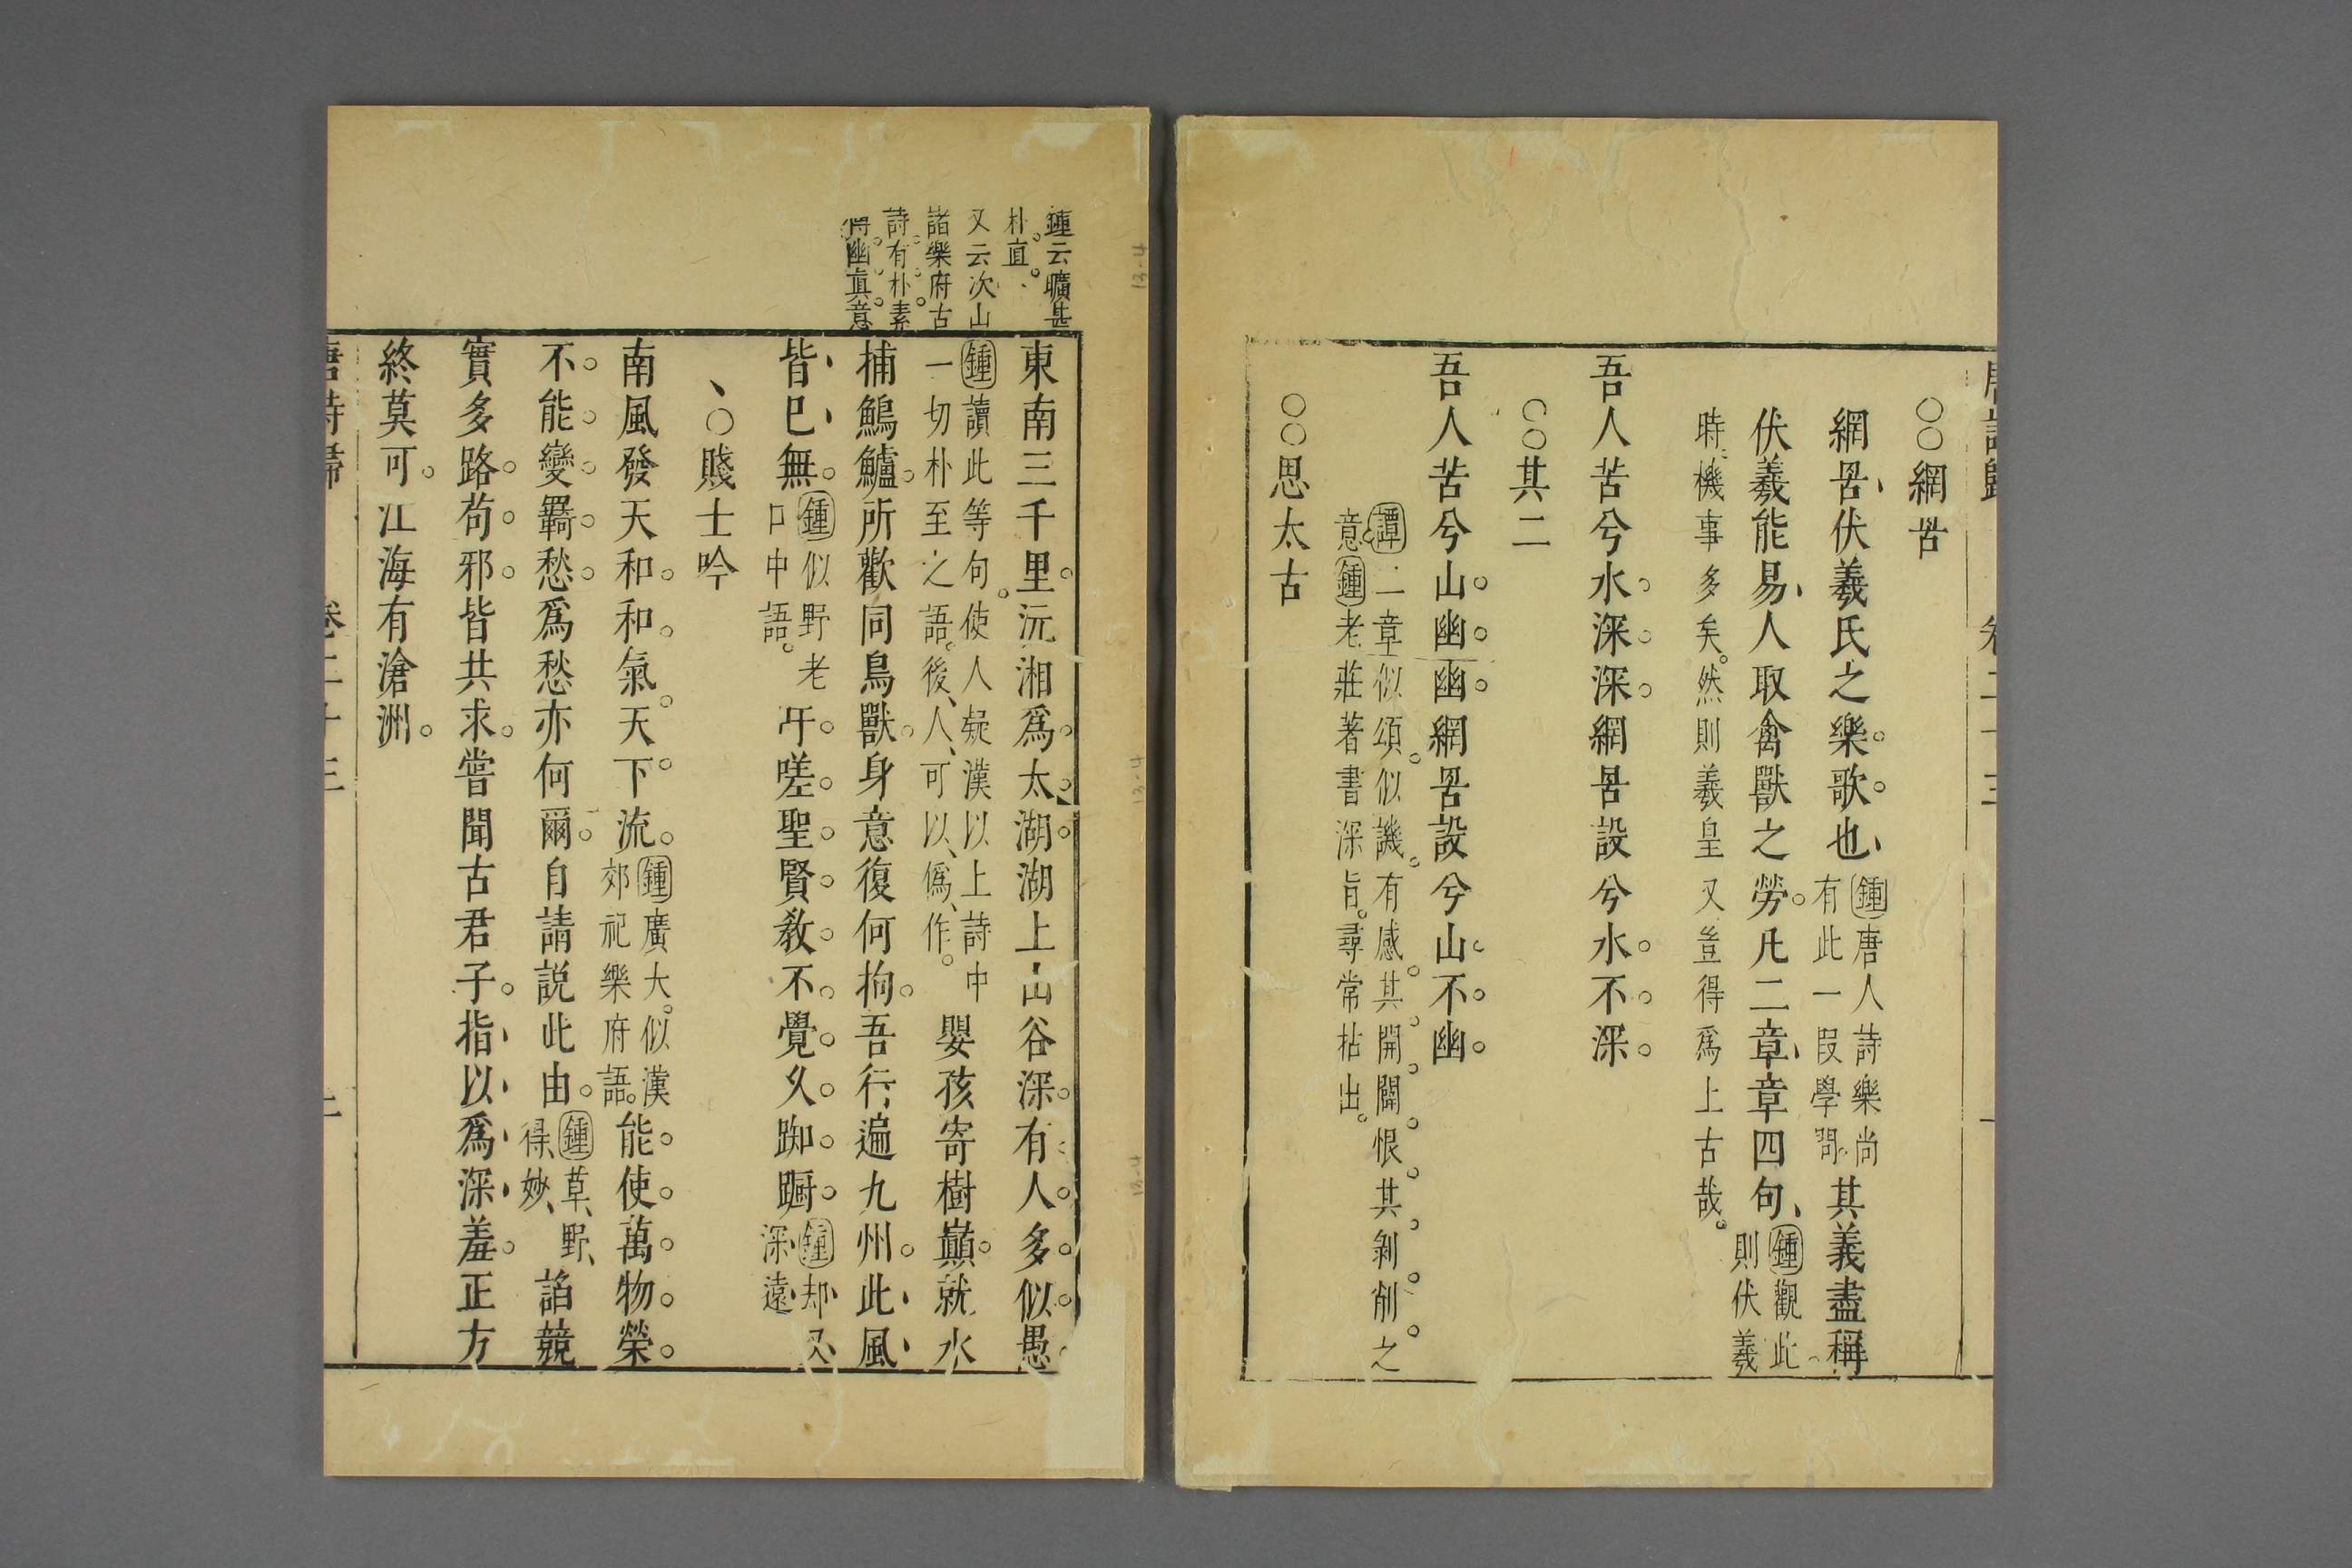 唐詩歸
卷二十三
○○網罟
網罟伏羲氏之樂歌也鍾唐人詩樂尚有此一段學問其義盡稱
伏羲能易人取禽獸之勞凡二章章四句鍾觀此則伏羲
時機事多矣然則羲皇又豈得爲上古哉
吾人苦兮水深深網罟設兮水不深
○○其二
吾人苦兮山幽幽網罟設兮山不幽
譚二章似頌似譏有感其開闢恨其剝削之
意鍾老莊著書深旨尋常拈出
○○思太古
鍾云曠甚
朴直
又云次山
諸樂府古
詩有朴素
傳幽真意
東南三千里沅湘爲太湖湖上山谷深有人多似愚
鍾讀此等句使人疑漢以上詩中一切朴至之語後人可以僞作嬰孩寄樹巔就水
捕鷠鱸所歡同鳥獸身意復何拘吾行遍九州此風
皆已無鍾似野老口中語吁嗟聖賢敎不覺久踟蹰鍾却又深遠
、○賤士吟
南風發天和和氣天下流鍾廣大似漢郊祀樂府語能使萬物榮
不能變羈愁爲愁亦何爾自請説此由鍾草野得妙諂競
實多路苟邪皆共求嘗聞古君子指以爲深羞正方
終莫可江海有滄洲
唐詩歸
卷二十三